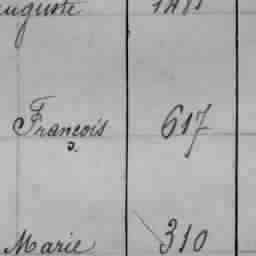 auguste 1481
François 617
Marie 310